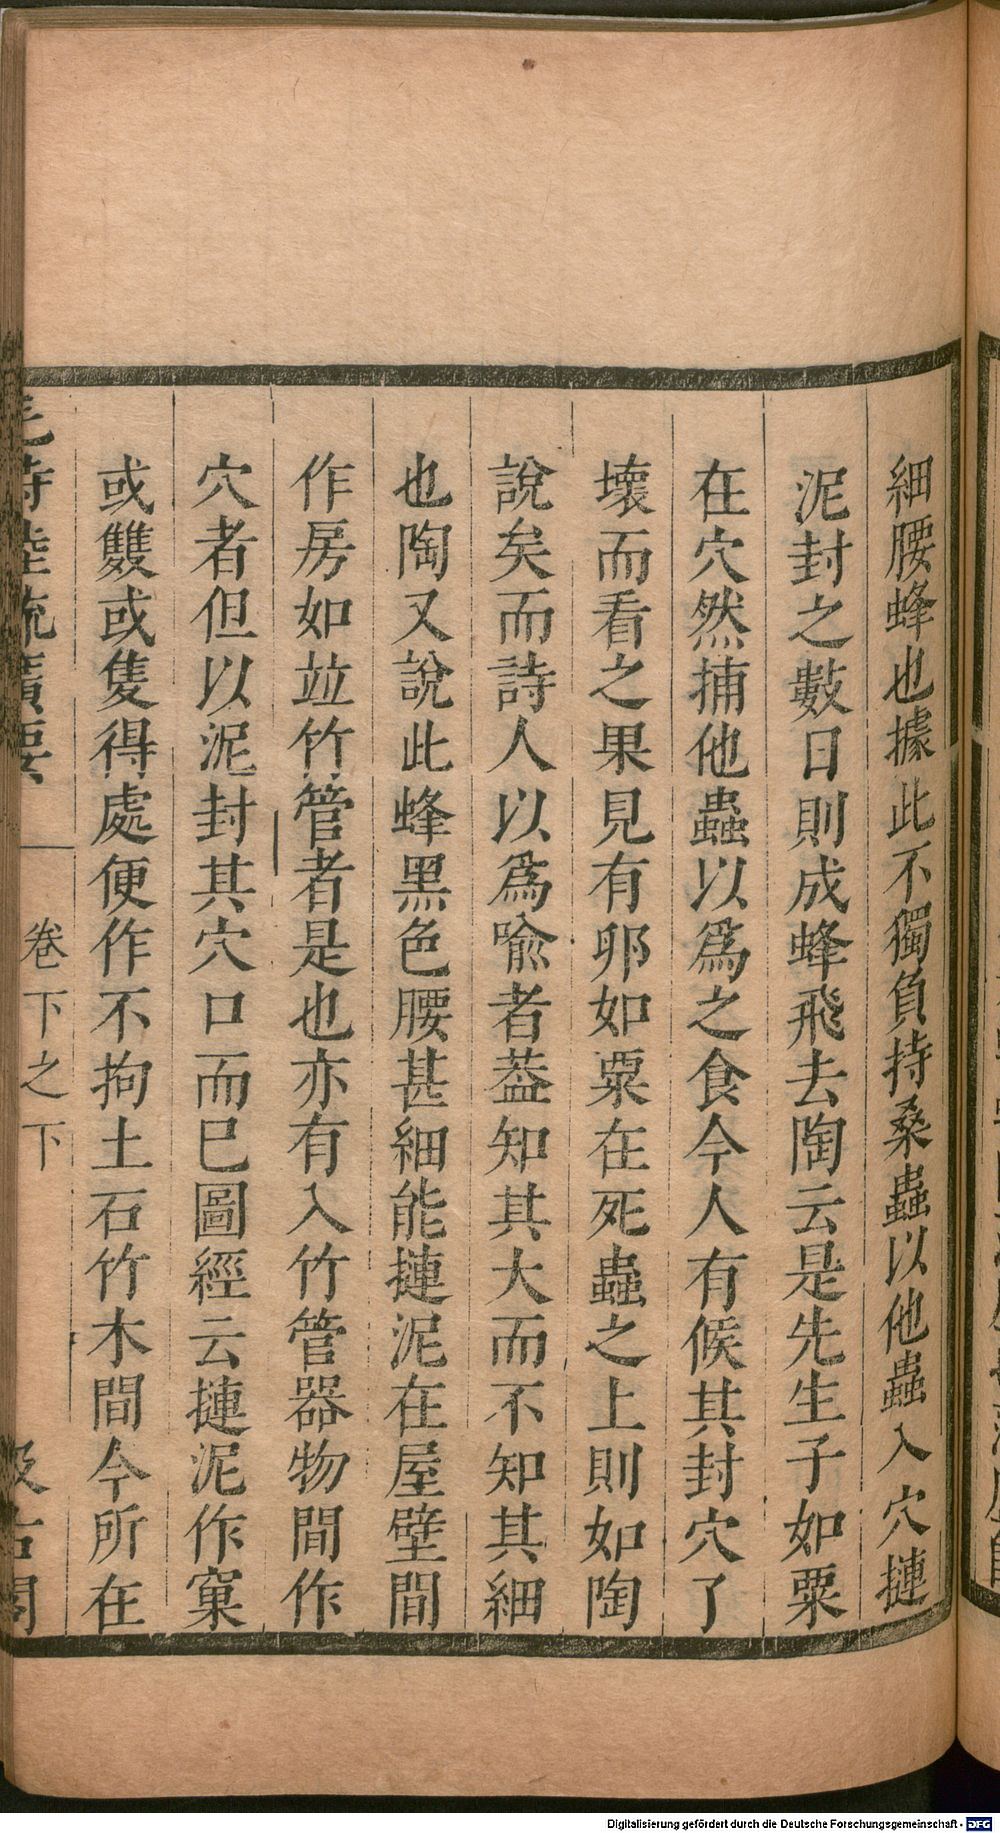 細腰蜂也據此不獨負持桑蟲以他蟲入穴摙
泥封之數日則成蜂飛去陶云是先生子如粟
在穴然捕他蟲以爲之食今人有候其封穴了
壞而看之果見有卵如粟在死蟲之上則如陶
說矣而詩人以爲喩者葢知其大而不知其細
也陶又說此蜂黑色腰甚細能摙泥在屋壁間
作房如竝竹管者是也亦有入竹管器物間作
穴者但以泥封其穴口而巳圖經云摙泥作窠
或雙或隻得處便作不拘土石竹木間今所在
毛詩陸疏廣要
卷下之下
汲古閣
Digitalisierung gefördert durch die Deutsche Forschungsgemeinschaft - DFG